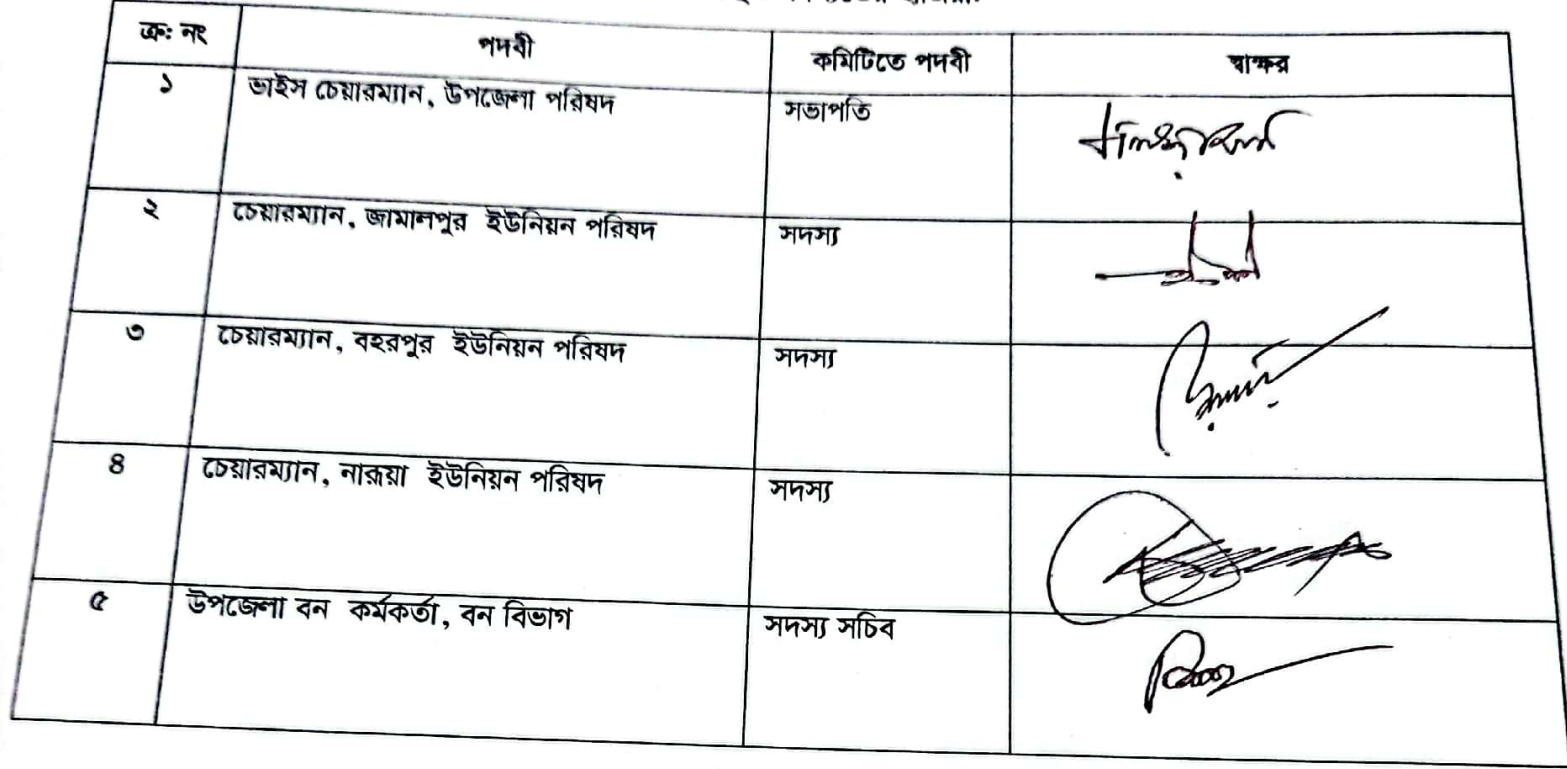 ক্র: নং পদবী কমিটিতে পদবী স্বাক্ষর
১ ভাইস চেয়ারম্যান, উপজেলা পরিষদ সভাপতি
২ চেয়ারম্যান, জামালপুর ইউনিয়ন পরিষদ সদস্য
৩ চেয়ারম্যান, বহরপুর ইউনিয়ন পরিষদ সদস্য
৪ চেয়ারম্যান, নারুয়া ইউনিয়ন পরিষদ সদস্য
৫ উপজেলা বন কর্মকর্তা, বন বিভাগ সদস্য সচিব